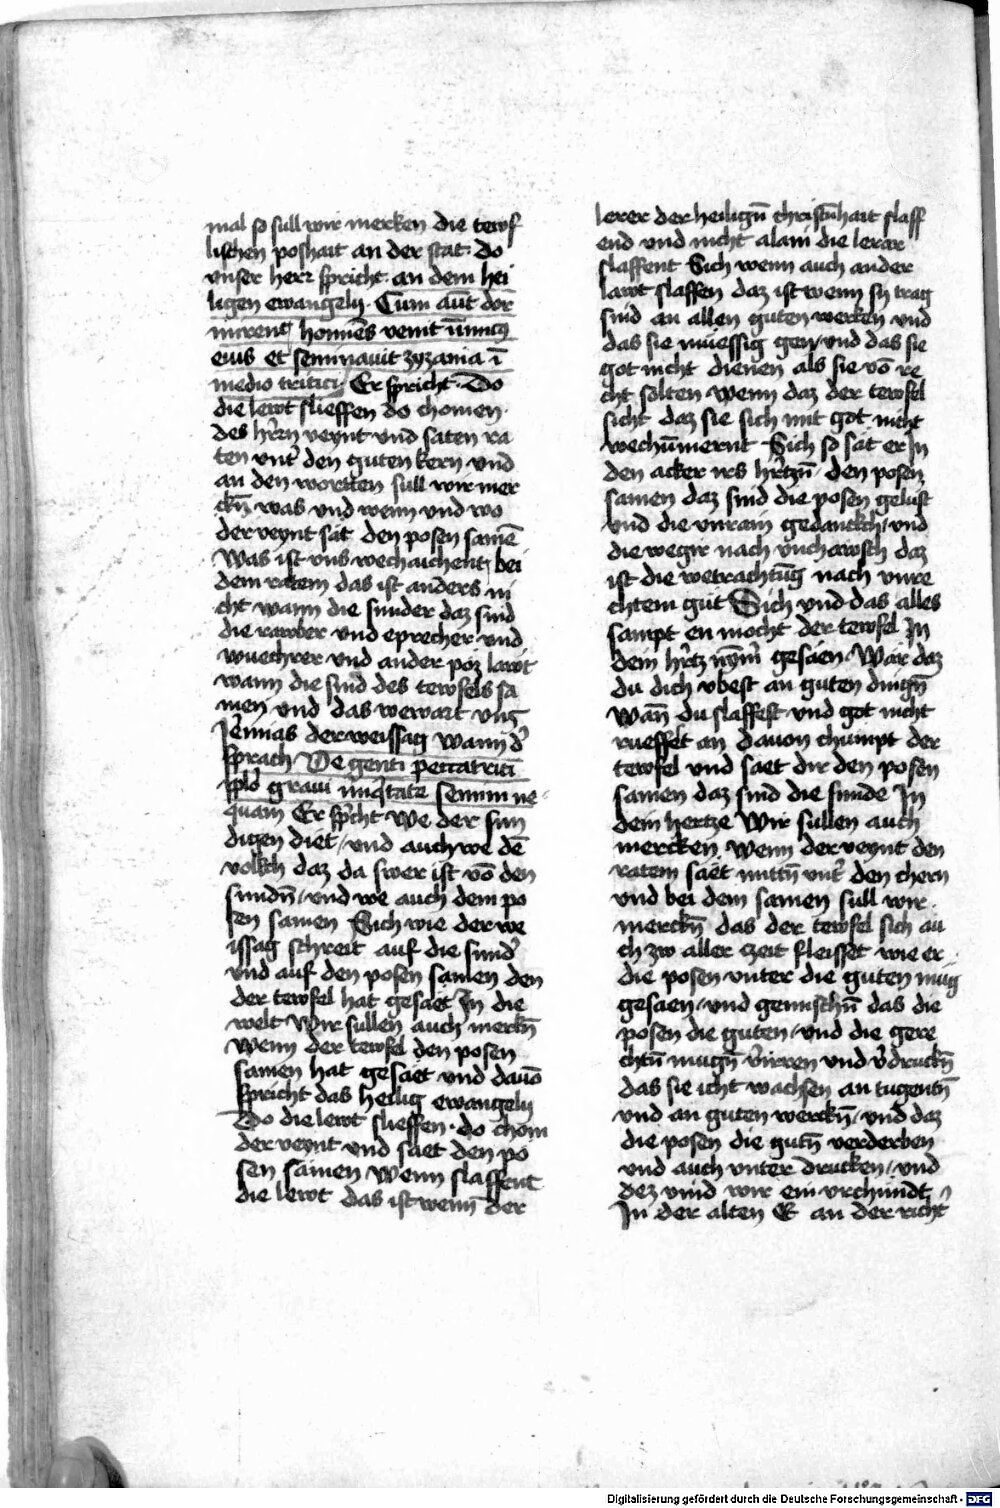 mal so sull wir mercken die tewf
lischen poshait an der stat · do
vnser herr spricht · an dem hei
ligen ewangely · Cum aut̄ dor
mirent homines venit inimicꝯ
eius et seminauit zyzania ī
medio tritici / Er spricht · Do
die lewt slieffen do chomen ·
des hr̄rn veynt vnd saten ra
ten vnt̄ den guten kern vnd
an den wortten sull wir mer
ckn̄ was vnd wenn vnd wo
der veynt sät den posen samē
Was ist vns wechaichent bei
dem ratem das ist anders ni
cht wann die sunder daz sind
die rawber vnd eprecher vnd
wuechrer vnd ander poz lawt
wann die sind des tewfels sa
men vnd das wewart vns
Jeremias der weissag wann d̄
sprach De genti peccatrici
pplo graui iniq̄tate semini ne-
quam Er sp̄cht we der sun
digen diet / vnd auch we dē
volkch daz da swer ist vō den
sundn̄ / vnd we auch dem po
sen samen Sich wie der we
issag schreit auf die sund̄
vnd auf den posen samen den
der tewfel hat gesäet In die
welt Wir sullen auch merkn̄
wenn der tewfel den posen
samen hat gesaet vnd dauō
spricht das heilig ewangely
Do die lewt slieffen · do chom
der veynt vnd saet den po
sen samen / wenn slaffent
die lewt das ist wenn der
lerer der heilign̄ christn̄hait slaff
end vnd nicht alain die lerar
slaffent Sich wenn auch ander
lawt slaffen daz ist wenn sy trag
sind an allen guten werken vnd
das sie muessig gen / vnd das sie
got nicht dienen als sie vō re
cht solten wenn daz der tewfel
sicht daz sie sich mit got nicht
wechūmernt Sich so sät er In
den acker irs hr̄tzn̄ den posen
samen daz sind die posen gelust
vnd die vnrain gedanckch / vnd
die wegir nach vnchawsch daz
ist die wetrachtūg nach vnre
chtem gut Sich vnd das alles
sampt en mocht der tewfel In
dem hr̄tz nym̄ gesaen · War daz
du dich vbest an guten dingn̄
wan̄ du slaffest vnd got nicht
rueffet an dauon chumpt der
tewfel vnd saet dir den posen
samen daz sind die sunde In
dem hertze Wir sullen auch
mercken wenn der veynt den
ratem säet mittn̄ vnt̄ den chern
vnd bei dem samen sull wir ·
merckn̄ das der tewfel sich au
ch zw aller czeit fleisset wie er
die posen vnter die guten mug
gesaen / vnd gemischn̄ das die
posen die guten / vnd die gere
chtn̄ mugn̄ v̄irren vnd v̄druckn̄
das sie icht wachsen an tugentn̄
vnd an guten werckn̄ / vnd daz
die posen die gutn̄ verderben
vnd auch vnter drucken / vnd
dez vind wir ein vrchundt
In der alten E an der richt
Digitalisierung gefördert durch die Deutsche Forschungsgemeinschaft - DFG